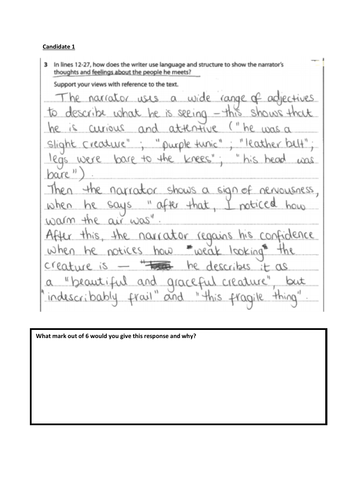 Candidate 1
3 In lines 12-27, how does the writer use language and structure to show the narrator's
thoughts and feelings about the people he meets?
Support your views with reference to the text.
The narrator uses a wide range of adjectives
to describe what he is seeing - this shows that
he is curious and attentive ("he was a
slight creature" ; "purple tunic" ; "leather belt";
legs were bare to the knees"; "his head was
bare").
Then the narrator shows a sign of nervousness,
when he says "after that, I noticed how
warm the air was".
After this, the narrator regains his confidence
when he notices how "weak looking" the
creature is - he describes it as
a "beautiful and graceful creature", but
"indescribably frail" and "this fragile thing".
What mark out of 6 would you give this response and why?